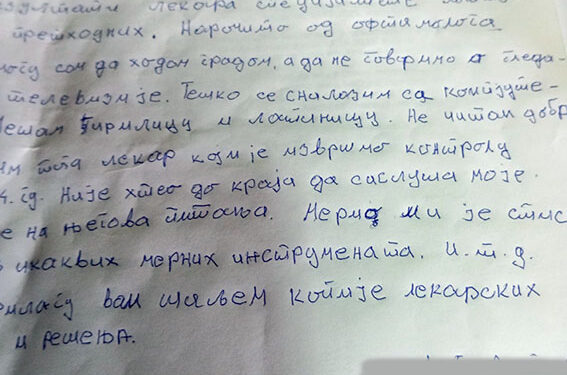 лекара специјалисте
претходних. Нарочито од офталмолога
могу сам да ходам градом, а да не говоримо о гледа-
телевизије. Тешко се сналазим са компјуте-
Мешам ћирилицу и латиницу. Не читам добр
им тога лекар који је извршио контролу
4. гд. Није хтео до краја да саслуша моје
е на његова питања. Мерио ми је стис
икаквих мерних инструмената. И.т.д.
рилагу вам шаљем копије лекарских
и решења.